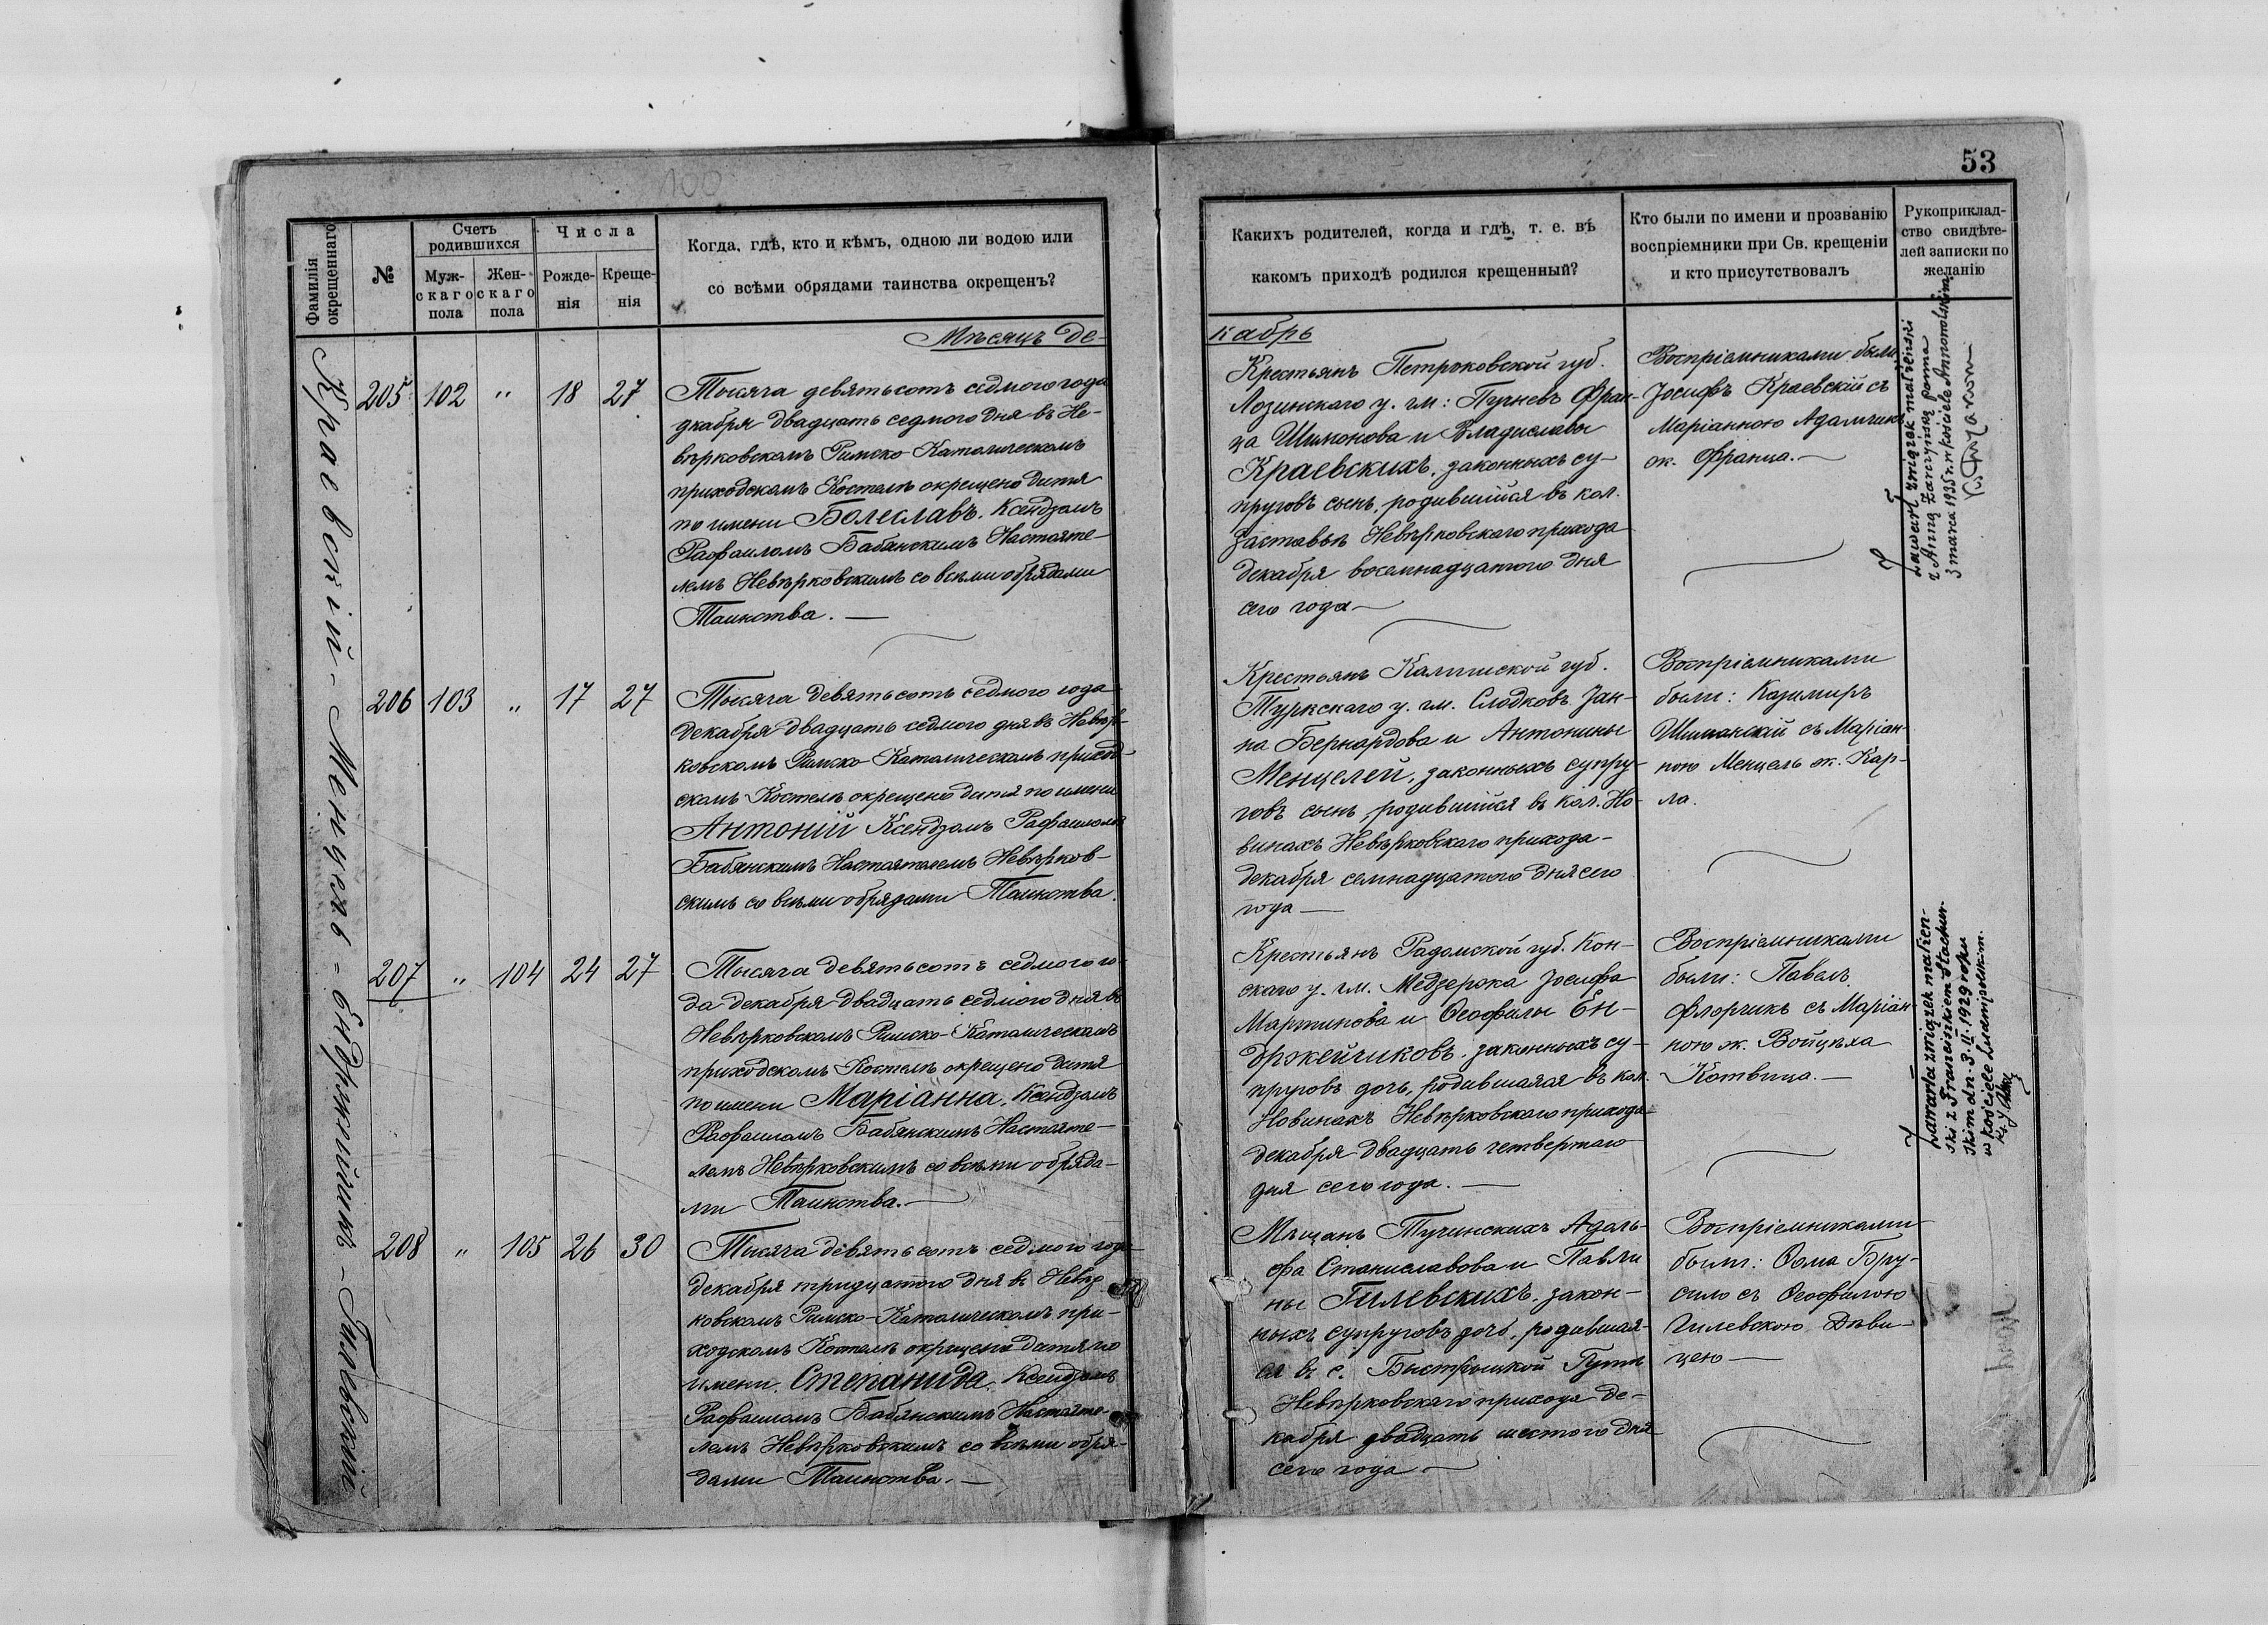 100
53
Фамилія окрещеннаго
№
Счетъ родившихся
Муж-
скаго
пола
Жен-
скаго
пола
Числа
Рожде-
нія
Креще-
нія
Когда, гдѣ, кто и кѣмъ, одною ли водою или
со всѣми обрядами таинства окрещенъ?
Каких родителей, когда и гдѣ, т. е. въ
какомъ приходѣ родился крещенный?
Кто были по имени и прозванію
воспріемники при Св. крещеніи
и кто присутствовалъ
Рукоприклад-
ство свидѣте-
лей записки по
желанію
Мѣсяцъ Де-
кабрь
Краевскій - Менцель = Ендржейчикъ - Гилевскій
205 102 " 18 27
Тысяча девятьсотъ седмого года
декабря двадцать седмого дня въ Не-
вѣрковскомъ Римско-Католическомъ
приходскомъ Костелѣ окрещено дитя
по имени Болеславъ. Ксендзомъ
Рафаиломъ Бабянскимъ Настояте-
лемъ Невѣрковскимъ со всѣми обрядами
Таинства. —
Крестьянъ Петроковской губ.
Лозинскаго у. гм: Пучневъ Фран-
ца Шимонова и Владиславы
Краевскихъ, законныхъ су-
пруговъ сынъ, родившійся въ кол.
Заставьѣ Невѣрковскаго прихода
декабря восемнадцатого дня
сего года —
Воспріемниками были
Іосифъ Краевскій съ
Маріанною Адамчикъ
ж. Франца. —
zawarł związek małżeński
z Anną Zarczyńską panna
3 marca 1935 r. w kościele Annonolskim
206 103 " 17 27
Тысяча девятьсотъ седмого года
декабря двадцать седмого дня въ Невѣр-
ковскомъ Римско-Католическомъ приход-
скомъ Костелѣ окрещено дитя по имени
Антоній Ксендзомъ Рафаиломъ
Бабянскимъ Настоятелемъ Невѣрков-
скимъ со всѣми обрядами Таинства.
Крестьянъ Калишской губ.
Туркскаго у. гм. Слодковъ Іан-
на Бернардова и Антонины
Менцелей, законныхъ супру-
говъ сынъ, родившійся въ кол. Но-
винахъ Невѣрковскаго прихода
декабря семнадцатого дня сего
года —
Воспріемниками
были: Казимиръ
Шиманскій съ Маріан-
ною Менцель ж. Кар-
ла.
207 " 104 24 27
Тысяча девятьсотъ седмого го-
да декабря двадцать седмого дня въ
Невѣрковскомъ Римско-Католическомъ
приходскомъ Костелѣ окрещено дитя
по имени Маріанна. Ксендзомъ
Рафаиломъ Бабянскимъ Настояте-
лемъ Невѣрковскимъ со всѣми обряда-
ми Таинства. —
Крестьянъ Радомской губ. Кон-
скаго у. гм. Медзержа Іосифа
Мартинова и Ѳеофилы Ен-
држейчиковъ, законныхъ су-
пруговъ дочь, родившаяся въ кол.
Новинахъ Невѣрковскаго прихода
декабря двадцать четвертаго
дня сего года. —
Воспріемниками
были: Павелъ
Флорчикъ съ Маріан-
ною ж. Войцѣха
Котвица. —
zawarła związek małżeń-
ski z Franciszkiem Stachur-
skim dn. 3. II. 1929 roku
w kościele Ludwipolskim.
208 " 105 26 30
Тысяча девятьсотъ седмого года
декабря тридцатого дня въ Невѣр-
ковскомъ Римско-Католическомъ при-
ходскомъ Костелѣ окрещено дитя по
имени Степанида. Ксендзомъ
Рафаиломъ Бабянскимъ Настояте-
лемъ Невѣрковскимъ со всѣми обря-
дами Таинства. —
Мѣщанъ Тучинскихъ Адоль-
фа Станиславова и Павли
ны Гилевскихъ, закон-
ныхъ супруговъ дочь, родившая-
ся въ с. Быстрыцкой Гутѣ
Невѣрковскаго прихода де-
кабря двадцать шестого дня
сего года —
Воспріемниками
были: Ѳома Бру-
сило съ Ѳеофилою
Гилевскою Дѣви-
цею —